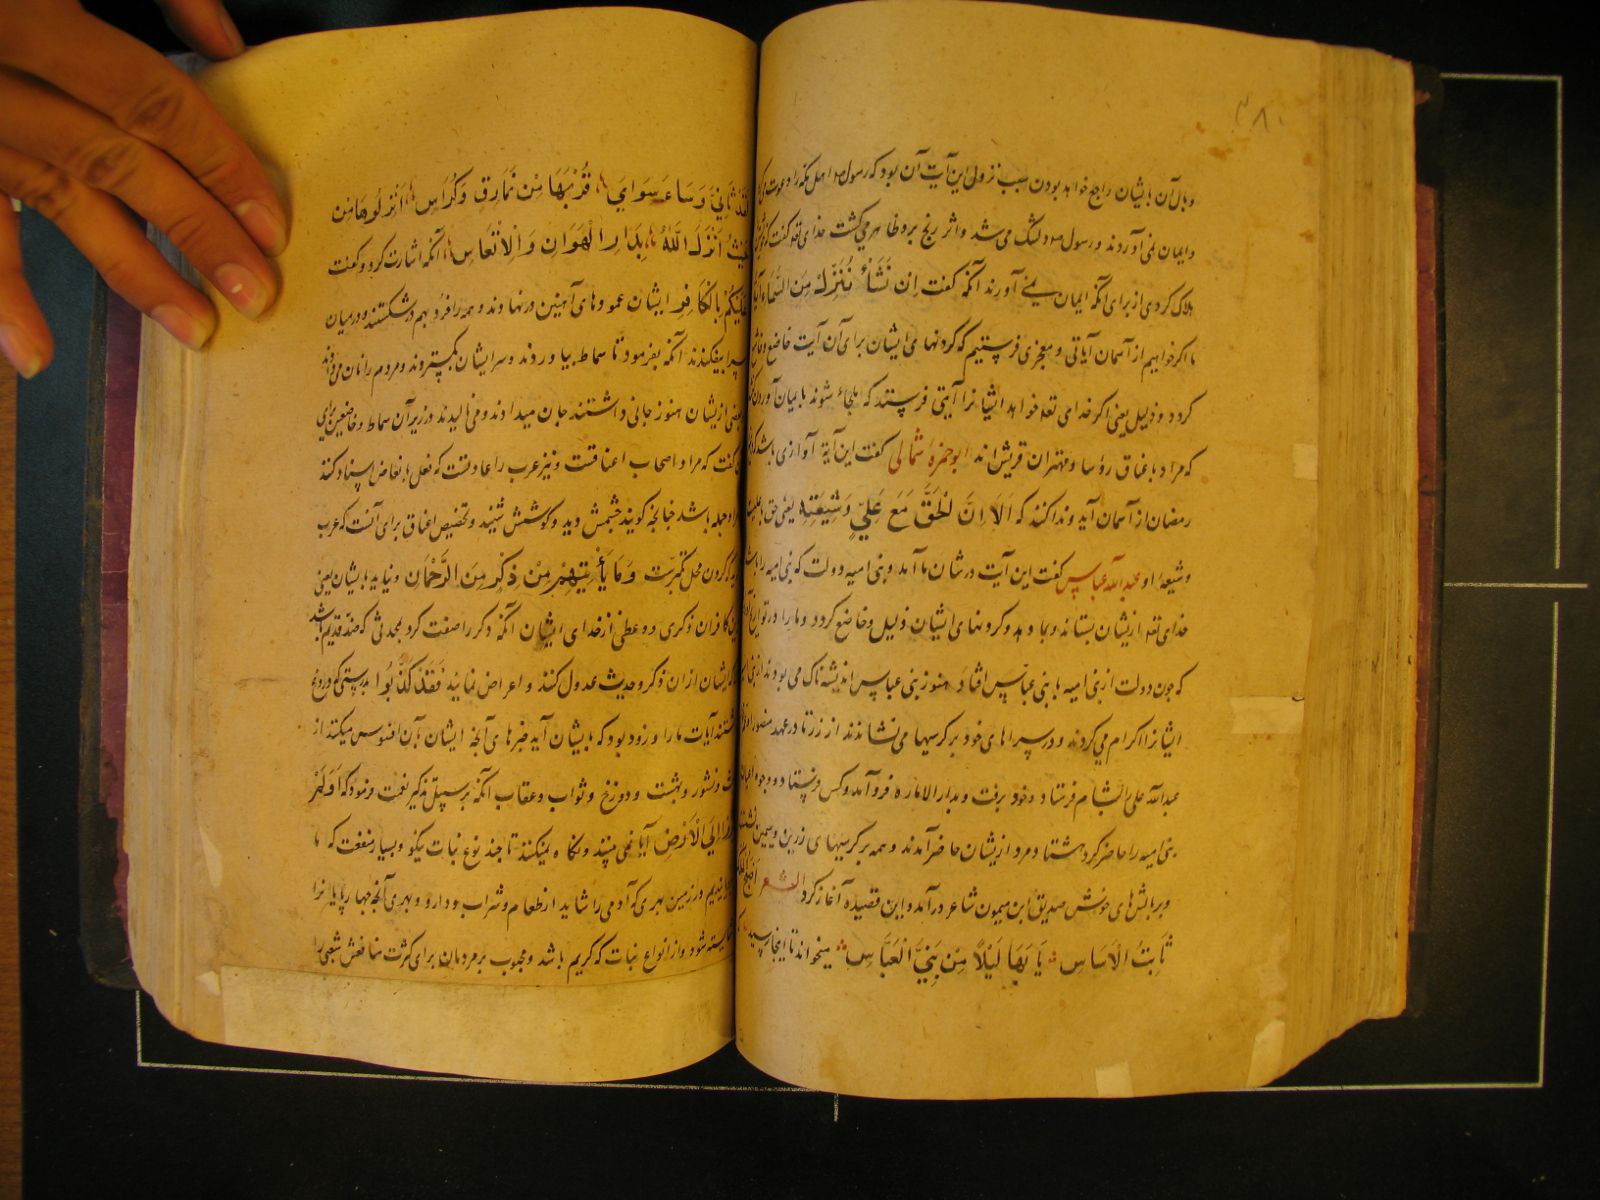 ۴۸۰
وبال آن بایشان راجع خواهد بودن سبب نزول این آیت آن بود که رسول ص اهل مکه را دعوت
وایمان نمی آوردند و رسول ص دلتنگ می شد و اثر رنج بر و ظاهر می گشت خدای تعه گفت
هلاک کردی از برای آنکه ایمان نمی آورند آنکه گفت اِن نَشَأْ نُنَزِّلْ مِنَ السَّمَاءِ
ما اگر خواهیم از آسمان آیاتی و معجزی فرستیم که گردنهای ایشان برای آن آیت خاضع
گردد و ذلیل یعنی اگر خدای تعه خواهد ایشانرا آیتی فرستد که ملجاء شوند بایمان آوردن
که مراد باعناق رؤسا و مهتران قریش اند ابو حمزه ثمالی گفت این آیة آوازی باشد که
رمضان از آسمان آید و ندا کند که اَلَا اِنَّ الْحَقَّ مَعَ عَلِیٍّ وَشِیعَتِهِ یعنی حق با علیست
و شیعهٔ او عبدالله عباس گفت این آیت در شان ما آمد و بنی امیه دولت که بنی امیه را باشد
خدای تعه ازیشان بستاند و بما دهد و گردنهای ایشان ذلیل و خاضع گردد و ما را در تواریخ
که چون دولت از بنی امیه با بنی عباس افتاد هنوز بنی عباس اندیشه ناک می بودند از بنی
ایشانرا اکرام می کردند و در سراهای خود بر کرسیها می نشاندند از زر تا در عهد منصور
عبدالله علی را بشام فرستاد و خود برفت و بدار الاماره فرو آمد و کس فرستاد و وجوه
بنی امیه را حاضر کرد هشتاد مرد ازیشان حاضر آمدند و همه بر کرسیهای زرین و سیمین
وبرالشهای خوش صدیق ابن میمون شاعر درآمد و این قصیده آغاز کرد الشعر اَصْبَحَ الْمُلْکُ
ثَابِتُ الْاَسَاسِ یَا بَهَا لَیْلًا مِنْ بَنِیَّ الْعَبَّاسِ میخواند تا اینجا رسید که
لَقَدْ سَاءَنِی وَسَاءَ سَوَایِ قُرْبُهَا مِنْ نَمَارِقٍ وَکَرَاسِ اَنْزِلُوهَا مِنْ
حَیْثُ اَنْزَلَ اللّٰهُ بِدَارِ الْهَوَانِ وَالْاِتْعَاسِ آنکه اشارت کرد و گفت
عَلَیْکُمْ بِالْکَافِرِ ایشان عمودهای آهنین درنهادند و همه را فرد بهم در شکستند و در میان
سرا بیفکندند آنکه بفرمود تا سماط بیاوردند و سر ایشان بگستردند و مردم را نان می دادند
بعضی ازیشان هنوز جانی داشتند جان میدادند و می نالیدند در زیر آن سماط و خاضعین برای
گفت که مراد اصحاب اعناقست و نیز عرب را عادتست که فعل با بعاض اسناد کنند
و جمله باشد چنانچه گویند چشمش دید و گوشش شنید و تخصیص اعناق برای آنست که عرب
که گردن محل تکبرست وَمَا یَأْتِیهِمْ مِنْ ذِکْرٍ مِنَ الرَّحْمٰنِ و نیاید بایشان یعنی
این کافران ذکری و وعظی از خدای ایشان آنکه ذکر را صفت کرد بمحدثی که ضد قدیم باشد
که ایشان ازان ذکر و حدیث عدول کنند و اعراض نمایند فَقَدْ کَذَّبُوا بدرستی که دروغ
داشتند آیات ما را و زود بود که بایشان آید خبرهای آنچه ایشان بآن افسوس میکنند از
بعث و نشور و بهشت و دوزخ و ثواب و عقاب آنکه بر سبیل تذکیر نعمت فرمود که اَوَلَمْ
یَرَوْا اِلَی الْاَرْضِ آیا نمی بینند و نگاه نمیکنند تا چند نوع نبات نیکو و بسیار منفعت که ما
برویاندیم در زمین بهری که آدمی را شاید از طعام و شراب و دارو و بهری آنچه چهارپایانرا
شایسته شود و از انواع نبات که کریم باشد و محبوب بر مردمان برای کثرت منافعش شعبی را